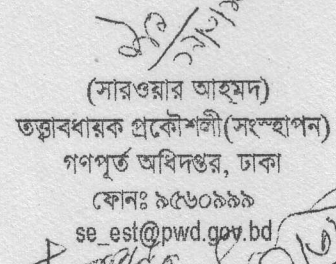 (সারওয়ার আহমদ)
তত্ত্বাবধায়ক প্রকৌশলী(সংস্হাপন)
গণপূর্ত অধিদপ্তর, ঢাকা
ফোনঃ ৯৫৬০৯৯৯
se_est@pwd.gov.bd